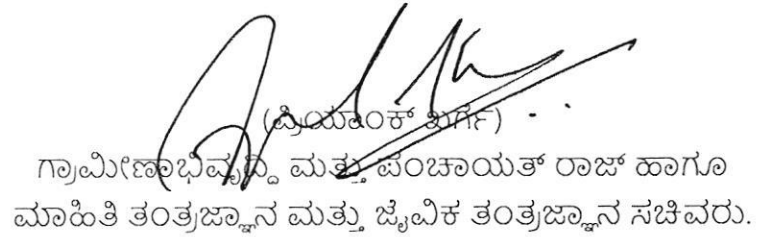 (ಪ್ರಿಯಾಂಕ್ ಖರ್ಗೆ)
ಗ್ರಾಮೀಣಾಭಿವೃದ್ಧಿ ಮತ್ತು ಪಂಚಾಯತ್ ರಾಜ್ ಹಾಗೂ
ಮಾಹಿತಿ ತಂತ್ರಜ್ಞಾನ ಮತ್ತು ಜೈವಿಕ ತಂತ್ರಜ್ಞಾನ ಸಚಿವರು.